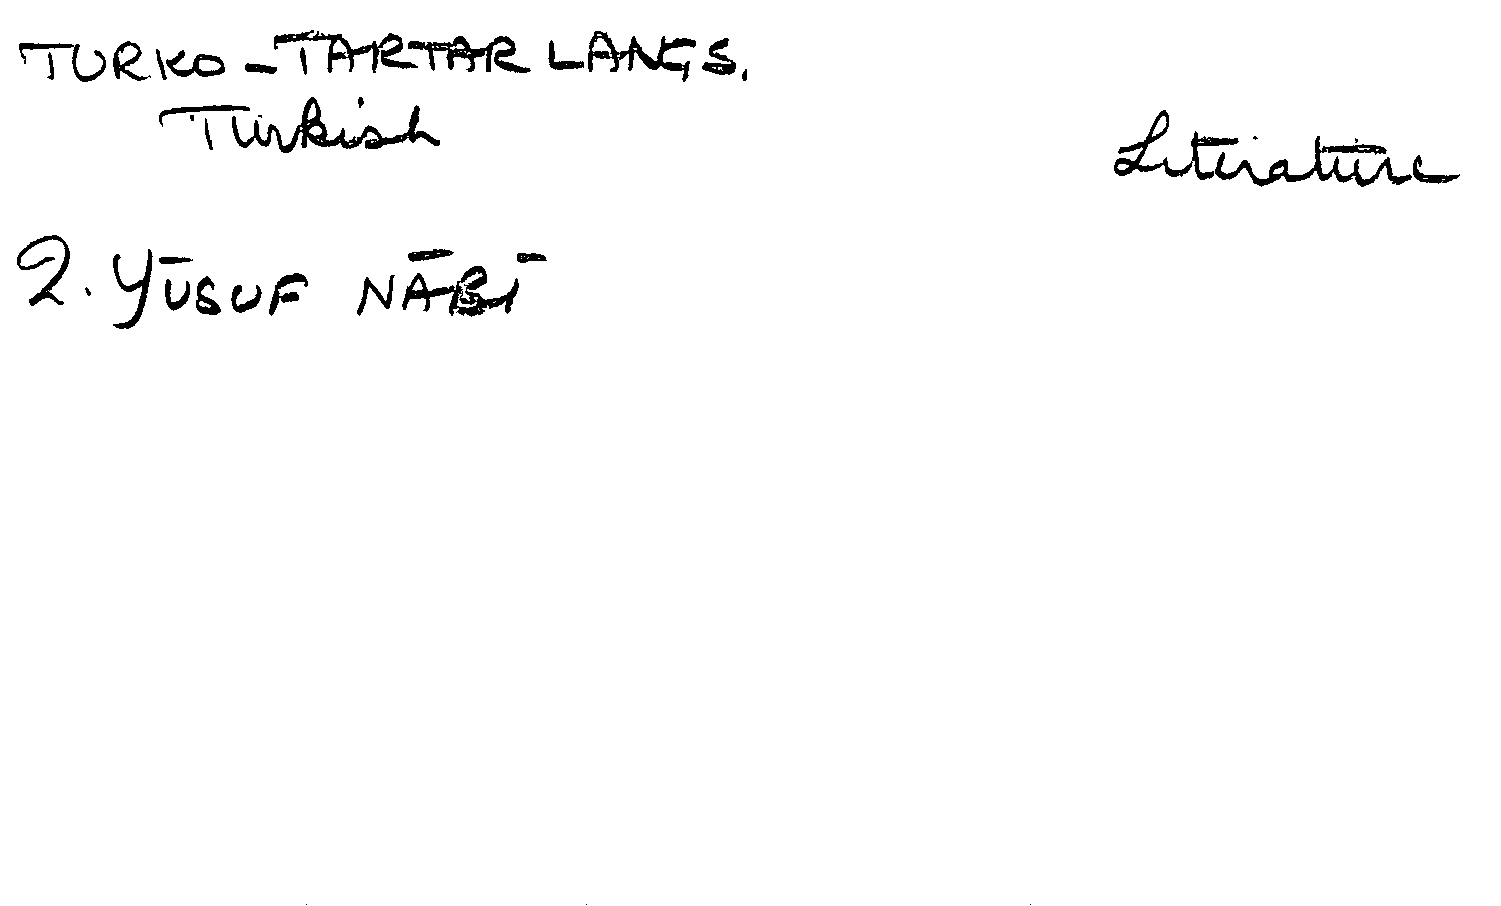 TURKO-TARTAR LANGS.
Turkish
Literature
2. YŪSUF NĀBĪ